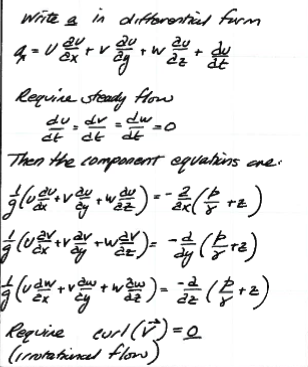 Write a in differential form
aₓ = U ∂u/∂x + v ∂u/∂y + w ∂u/∂z + du/dt
Require steady flow
du/dt = dv/dt = dw/dt = 0
Then the component equations are:
1/g (u ∂u/∂x + v ∂u/∂y + w ∂u/∂z) = - ∂/∂x (p/γ + z)
1/g (u ∂v/∂x + v ∂v/∂y + w ∂v/∂z) = - ∂/∂y (p/γ + z)
1/g (u ∂w/∂x + v ∂w/∂y + w ∂w/∂z) = - ∂/∂z (p/γ + z)
Require curl (V⃗) = 0
(irrotational flow)